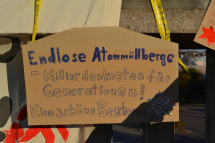 Endlose Atommüllberge
- Milliardenkosten für
Generationen!
Eine schöne